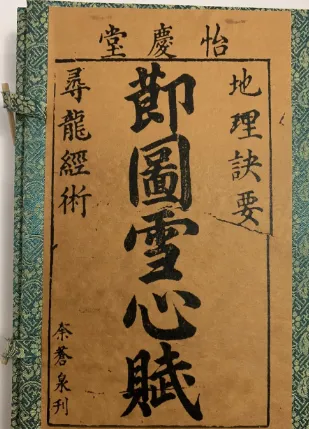 怡慶堂
地理訣要
莭圖雪心賦
尋龍經術
余蒼泉刊